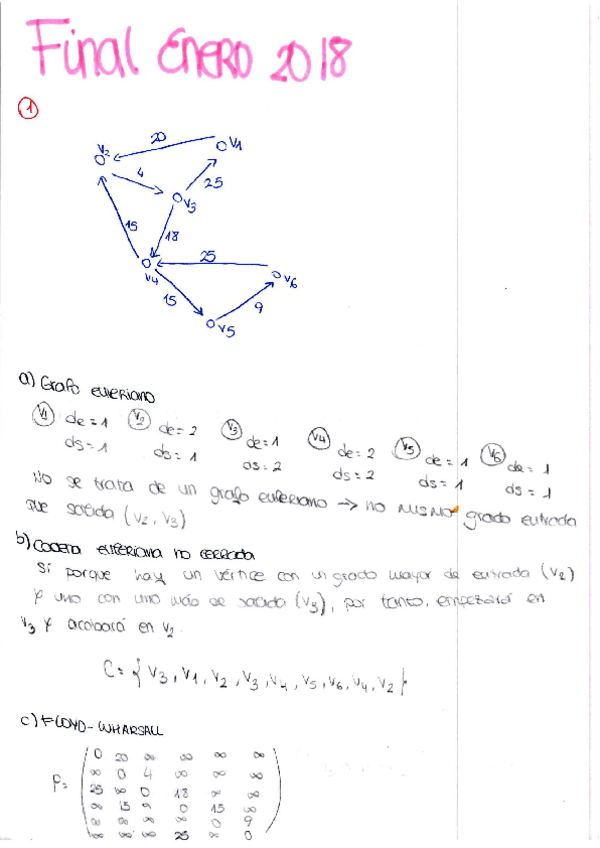 Final ENERO 2018
1
20
V1
V2
4
25
V3
15
18
25
V4
V6
15
9
V5
a) Grafo euleriano
V1 de = 1 V2 de = 2 V3 de = 1 V4 de = 2 V5 de = 1 V6 de = 1
ds = 1 ds = 1 ds = 2 ds = 2 ds = 1 ds = 1
No se trata de un grafo euleriano → no mismo grado entrada
que salida (V2, V3)
b) Cadena euleriana no cerrada
Sí porque hay un vértice con un grado mayor de entrada (V2)
y uno con uno más de salida (V3), por tanto, empezará en
V3 y acabará en V2.
C = { V3, V1, V2, V3, V4, V5, V6, V4, V2 }
c) FLOYD-WHARSALL
0 20 ∞ ∞ ∞ ∞
∞ 0 4 ∞ ∞ ∞
P = 25 ∞ 0 18 ∞ ∞
∞ 15 ∞ 0 15 ∞
∞ ∞ ∞ ∞ 0 9
∞ ∞ ∞ 25 ∞ 0